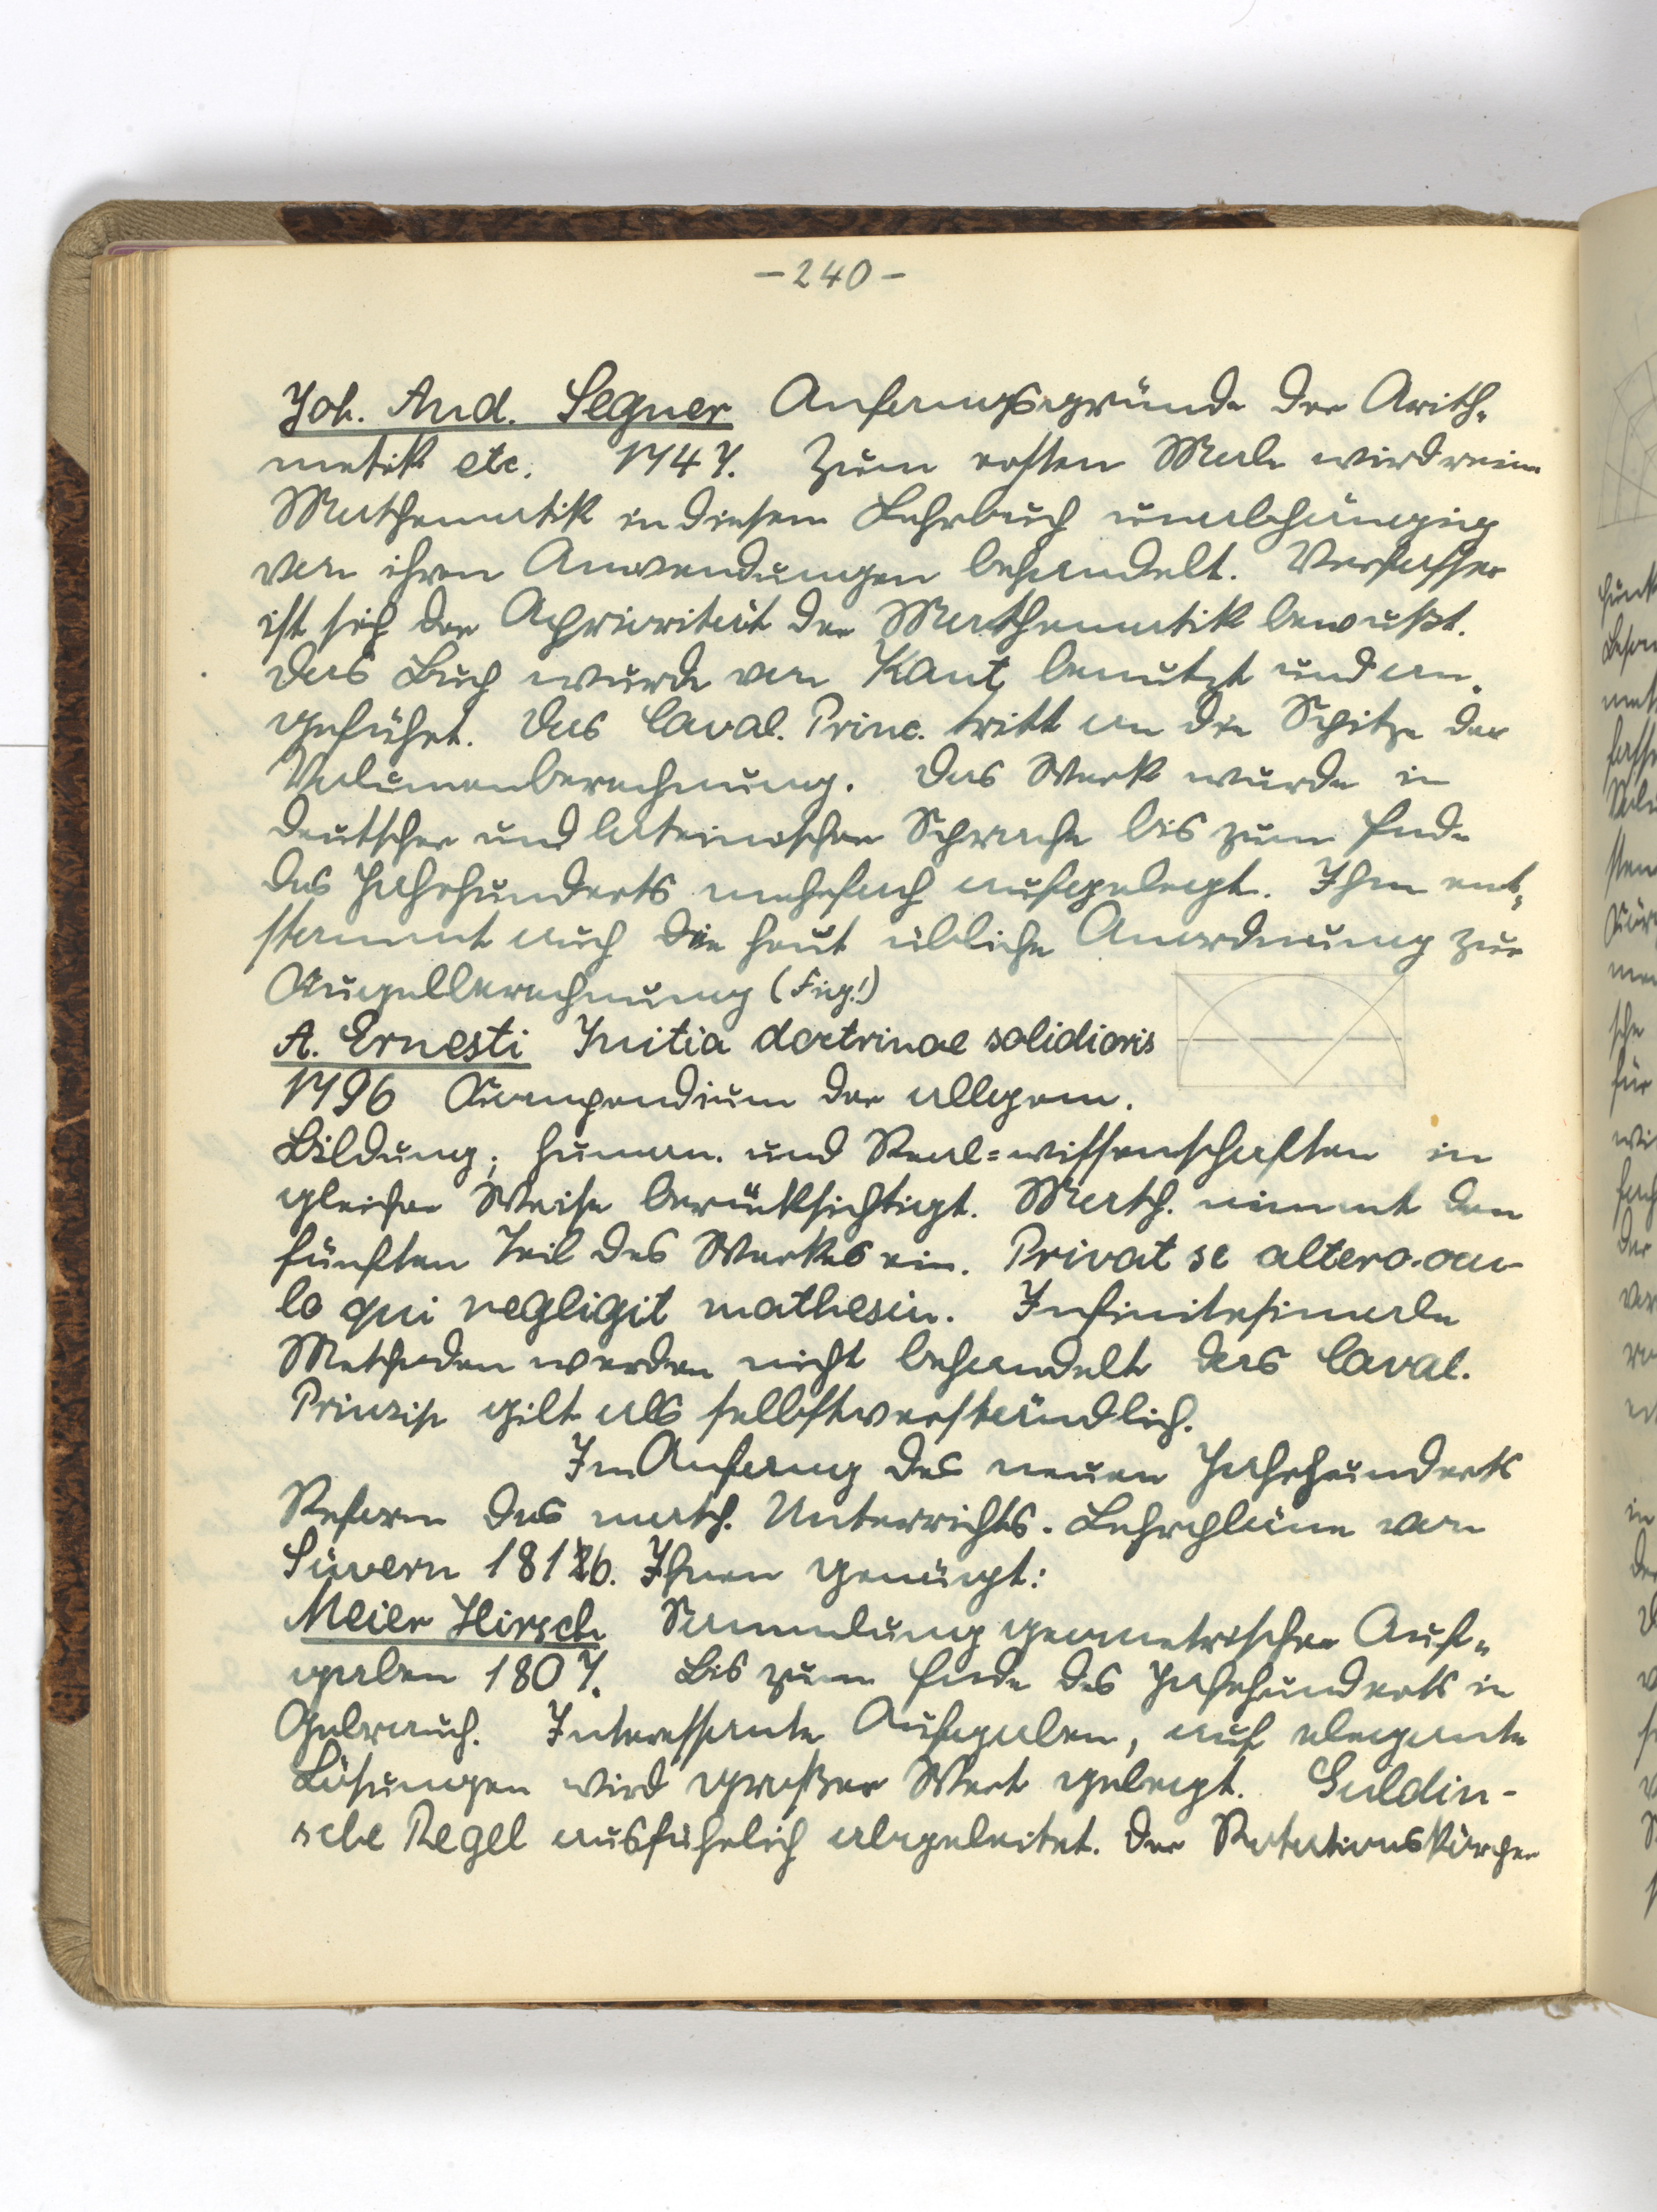 -240-
Joh. And. Segner Anfangsgründe der Arith-
metik etc. 1747. Zum ersten Male wird reine
Mathematik in diesem Lehrbuch unabhängig
von ihren Anwendungen behandelt. Verfasser
ist sich der Apriorität der Mathematik bewußt.
Das Buch wurde von Kant benutzt und an-
geführt. Das Caval. Princ. tritt an die Spitze der
Volumenberechnung. Das Werk wurde in
deutscher und lateinischer Sprache bis zum Ende
des Jahrhunderts mehrfach aufgelegt. Ihm ent-
stammt auch die heut übliche Anordnung zur
Kugelberechnung (Fig.!)
A. Ernesti Initia doctrinae solidioris
1796 Kompendium der allgem.
Bildung; human. und Real=wissenschaften in
gleicher Weise berücksichtigt. Math. nimmt den
fünften Teil des Werkes ein. Privat se altero ocu-
lo qui negligit mathesin. Infinitesimale
Methoden werden nicht behandelt das Caval.
Prinzip gilt als selbstverständlich.
Im Anfang des neuen Jahrhunderts
Reform des math. Unterrichts. Lehrpläne von
Süvern 1816. Ihnen genügt:
Meier Hirsch Sammlung geometrischer Auf-
gaben 1807. Bis zum Ende des Jahrhunderts in
Gebrauch. Interessante Aufgaben, auf elegante
Lösungen wird großer Wert gelegt. Guldin-
sche Regel ausführlich abgeleitet. Der Rotationskörper